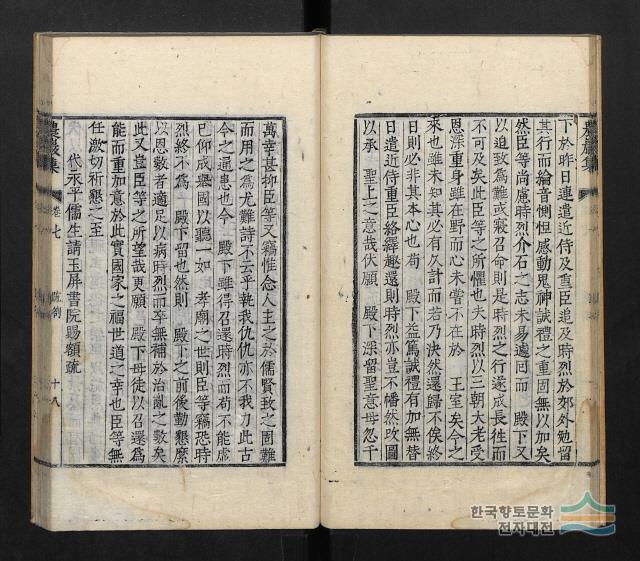 下於昨日連遣近侍及重臣追及時烈於郊外勉留
其行而綸音惻怛感動鬼神誠禮之重固無以加矣
然臣等尚慮時烈介石之志未易遽回而 殿下又
以追致爲難或寢召命則是時烈之行遂成長往而
不可及矣此臣等之所懼也夫時烈以三朝大老受
恩深重身雖在野而心未嘗不在於 王室矣今之
來也雖未知其必有久計而若乃決然還歸不俟終
日則必非其本心也苟 殿下益篤誠禮有加無替
日遣近侍重臣絡繹趣還則時烈亦豈不幡然改圖
以承 聖上之意哉伏願 殿下深留聖意毋忽千
萬幸甚抑臣等又竊惟念人主之於儒賢致之固難
而用之爲尤難詩不云乎執我仇仇亦不我力此古
今之通患也今 殿下雖得召還時烈而苟不能虛
已仰成擧國以聽一如 孝廟之世則臣等竊恐時
烈終不爲 殿下留也然則 殿下之前後勤懇縻
以恩數者適足以病時烈而卒無補於治亂之數矣
此又豈臣等之所望哉更願 殿下毋徒以召還爲
能而重加意於此實國家之福世道之幸也臣等無
任激切祈懇之至
代永平儒生請玉屛書院賜額疏
農巖集
卷七
疏箚
十八
農巖集
한국향토문화
전자대전